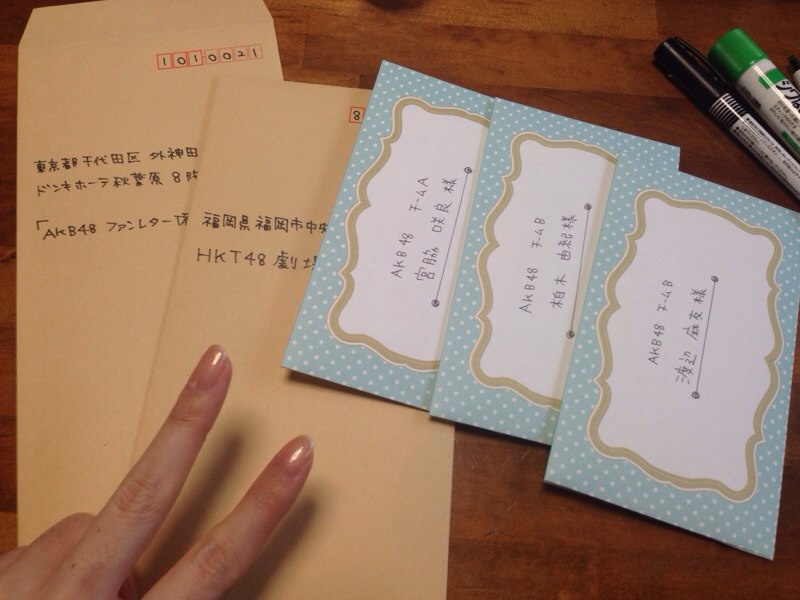 1010021
東京都千代田区 外神田
ドンキホーテ秋葉原 8階
「AKB48 ファンレター係
8
福岡県福岡市中央
HKT48 劇場
AKB48 チームA
宮脇 咲良 様
AKB48 チームB
柏木 由紀 様
AKB48 チームB
渡辺 麻友 様